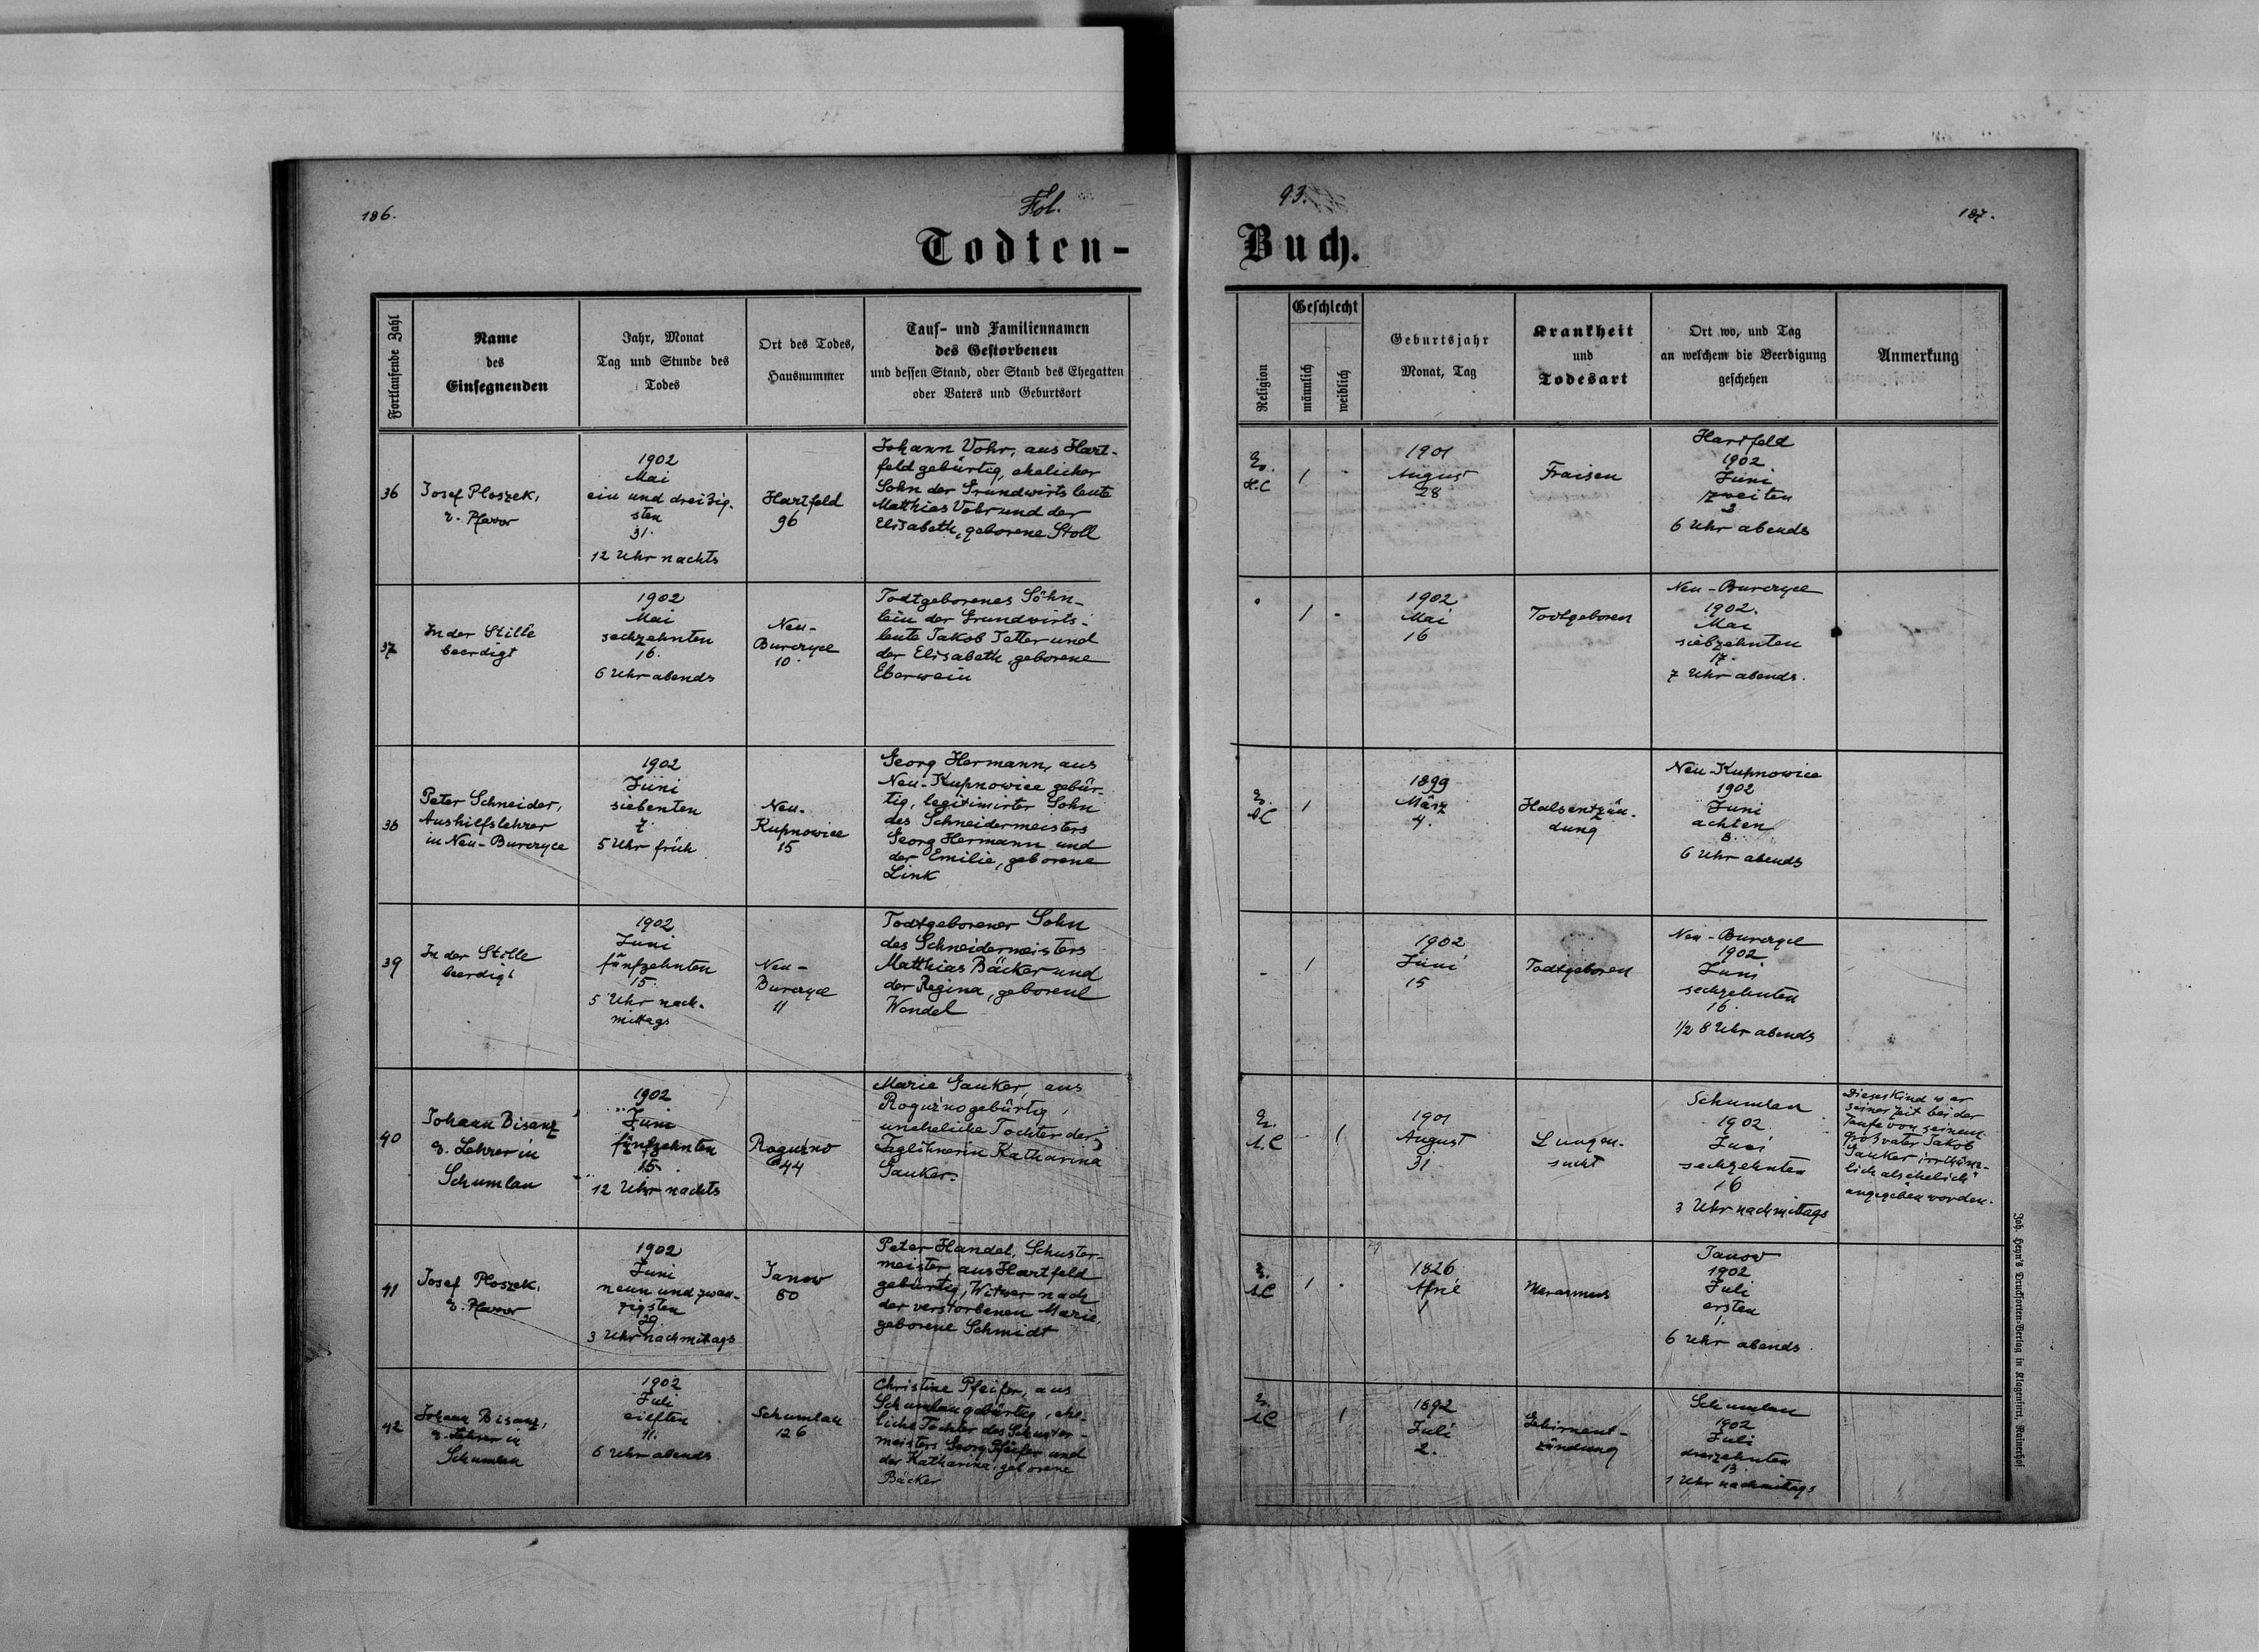 186.
Fol.
93.
187.
Todten-
Buch.
Fortlaufende Zahl
Name
des
Einsegnenden
Jahr, Monat
Tag und Stunde des
Todes
Ort des Todes,
Hausnummer
Tauf- und Familiennamen
des Gestorbenen
und dessen Stand, oder Stand des Ehegatten
oder Vaters und Geburtsort
Religion
Geschlecht
männlich
weiblich
Geburtsjahr
Monat, Tag
Krankheit
und
Todesart
Ort wo, und Tag
an welchem die Beerdigung
geschehen
Anmerkung
36
Josef Ploszek,
e. Pfarrer
1902
Mai
ein und dreißig-
sten
31.
12 Uhr nachts
Hartfeld
96
Johann Vohr, aus Hart-
feld gebürtig, ehelicher
Sohn der Grundwirtsleute
Matthias Vohr und der
Elisabeth, geborene Stoll
Ev.
H.C
1
-
1901
August
28
Fraisen
Hartfeld
1902
Juni
zweiten
6 Uhr abends
37
In der Stille
beerdigt
1902
Mai
sechzehnten
16.
6 Uhr abends
Neu-
Burczyce
10.
Todtgeborenes Söhn-
lein der Grundwirts-
leute Jakob Tetter und
der Elisabeth, geborene
Eberwein
1
-
1902
Mai
16
Todtgeboren
Neu-Burczyce
1902.
Mai
siebzehnten
17.
7 Uhr abends.
38
Peter Schneider,
Aushilfslehrer
in Neu-Burczyce
1902
Juni
siebenten
7.
5 Uhr früh
Neu-
Kupnowice
15
Georg Hermann, aus
Neu-Kupnowice gebür-
tig, legitimirter Sohn
des Schneidermeisters
Georg Hermann und
der Emilie, geborene
Link
Ev.
A.C
1
1899
März
4.
Halsentzün-
dung
Neu-Kupnowice
1902
Juni
achten
8.
6 Uhr abends
39
In der Stille
beerdigt
1902
Juni
fünfzehnten
15.
5 Uhr nach-
mittags
Neu-
Burczyce
11
Todtgeborener Sohn
des Schneidermeisters
Matthias Bäcker und
der Regina, geborene
Wendel
-
1
1902
Juni
15
Todtgeboren
Neu-Burczyce
1902
Juni
sechzehnten
16.
1/2 8 Uhr abends
40
Johann Bisanz
e. Lehrer in
Schumlau
1902
Juni
fünfzehnten
15.
12 Uhr nachts
Roguźno
44
Marie Gauker, aus
Roguźno gebürtig,
uneheliche Tochter der
Taglöhnerin Katharina
Gauker.
Ev.
A.C
1
1901
August
31
Lungen-
sucht
Schumlau
1902
Juni
sechzehnten
16
3 Uhr nachmittags
Dieses Kind war
seiner Zeit bei der
Taufe von seinem
Großvater Jakob
Gauker irrthüm-
lich als „ehelich“
angegeben worden.
41
Josef Ploszek,
e. Pfarrer
1902
Juni
neun und zwan-
zigsten
29.
3 Uhr nachmittags
Janow
80
Peter Handel, Schuster-
meister aus Hartfeld
gebürtig, Witwer nach
der verstorbenen Marie,
geborene Schmidt
Ev.
A.C
1
-
1826
April
1
Marasmus
Janow
1902
Juli
ersten
1.
6 Uhr abends
42
Johann Bisanz,
e. Lehrer in
Schumlau
1902
Juli
eilften
11.
6 Uhr abends
Schumlau
126
Christine Pfeifer, aus
Schumlau gebürtig, ehe-
liche Tochter des Schuster-
meisters Georg Pfeifer und
der Katharina, geborene
Bäcker
Ev.
A.C
1
1892
Juli
2.
Gehirnent-
zündung
Schumlau
1902
Juli
dreizehnten
13
1 Uhr nachmittags
Joh. Heyn's Drucksorten-Verlag in Klagenfurt, Rainerhof.